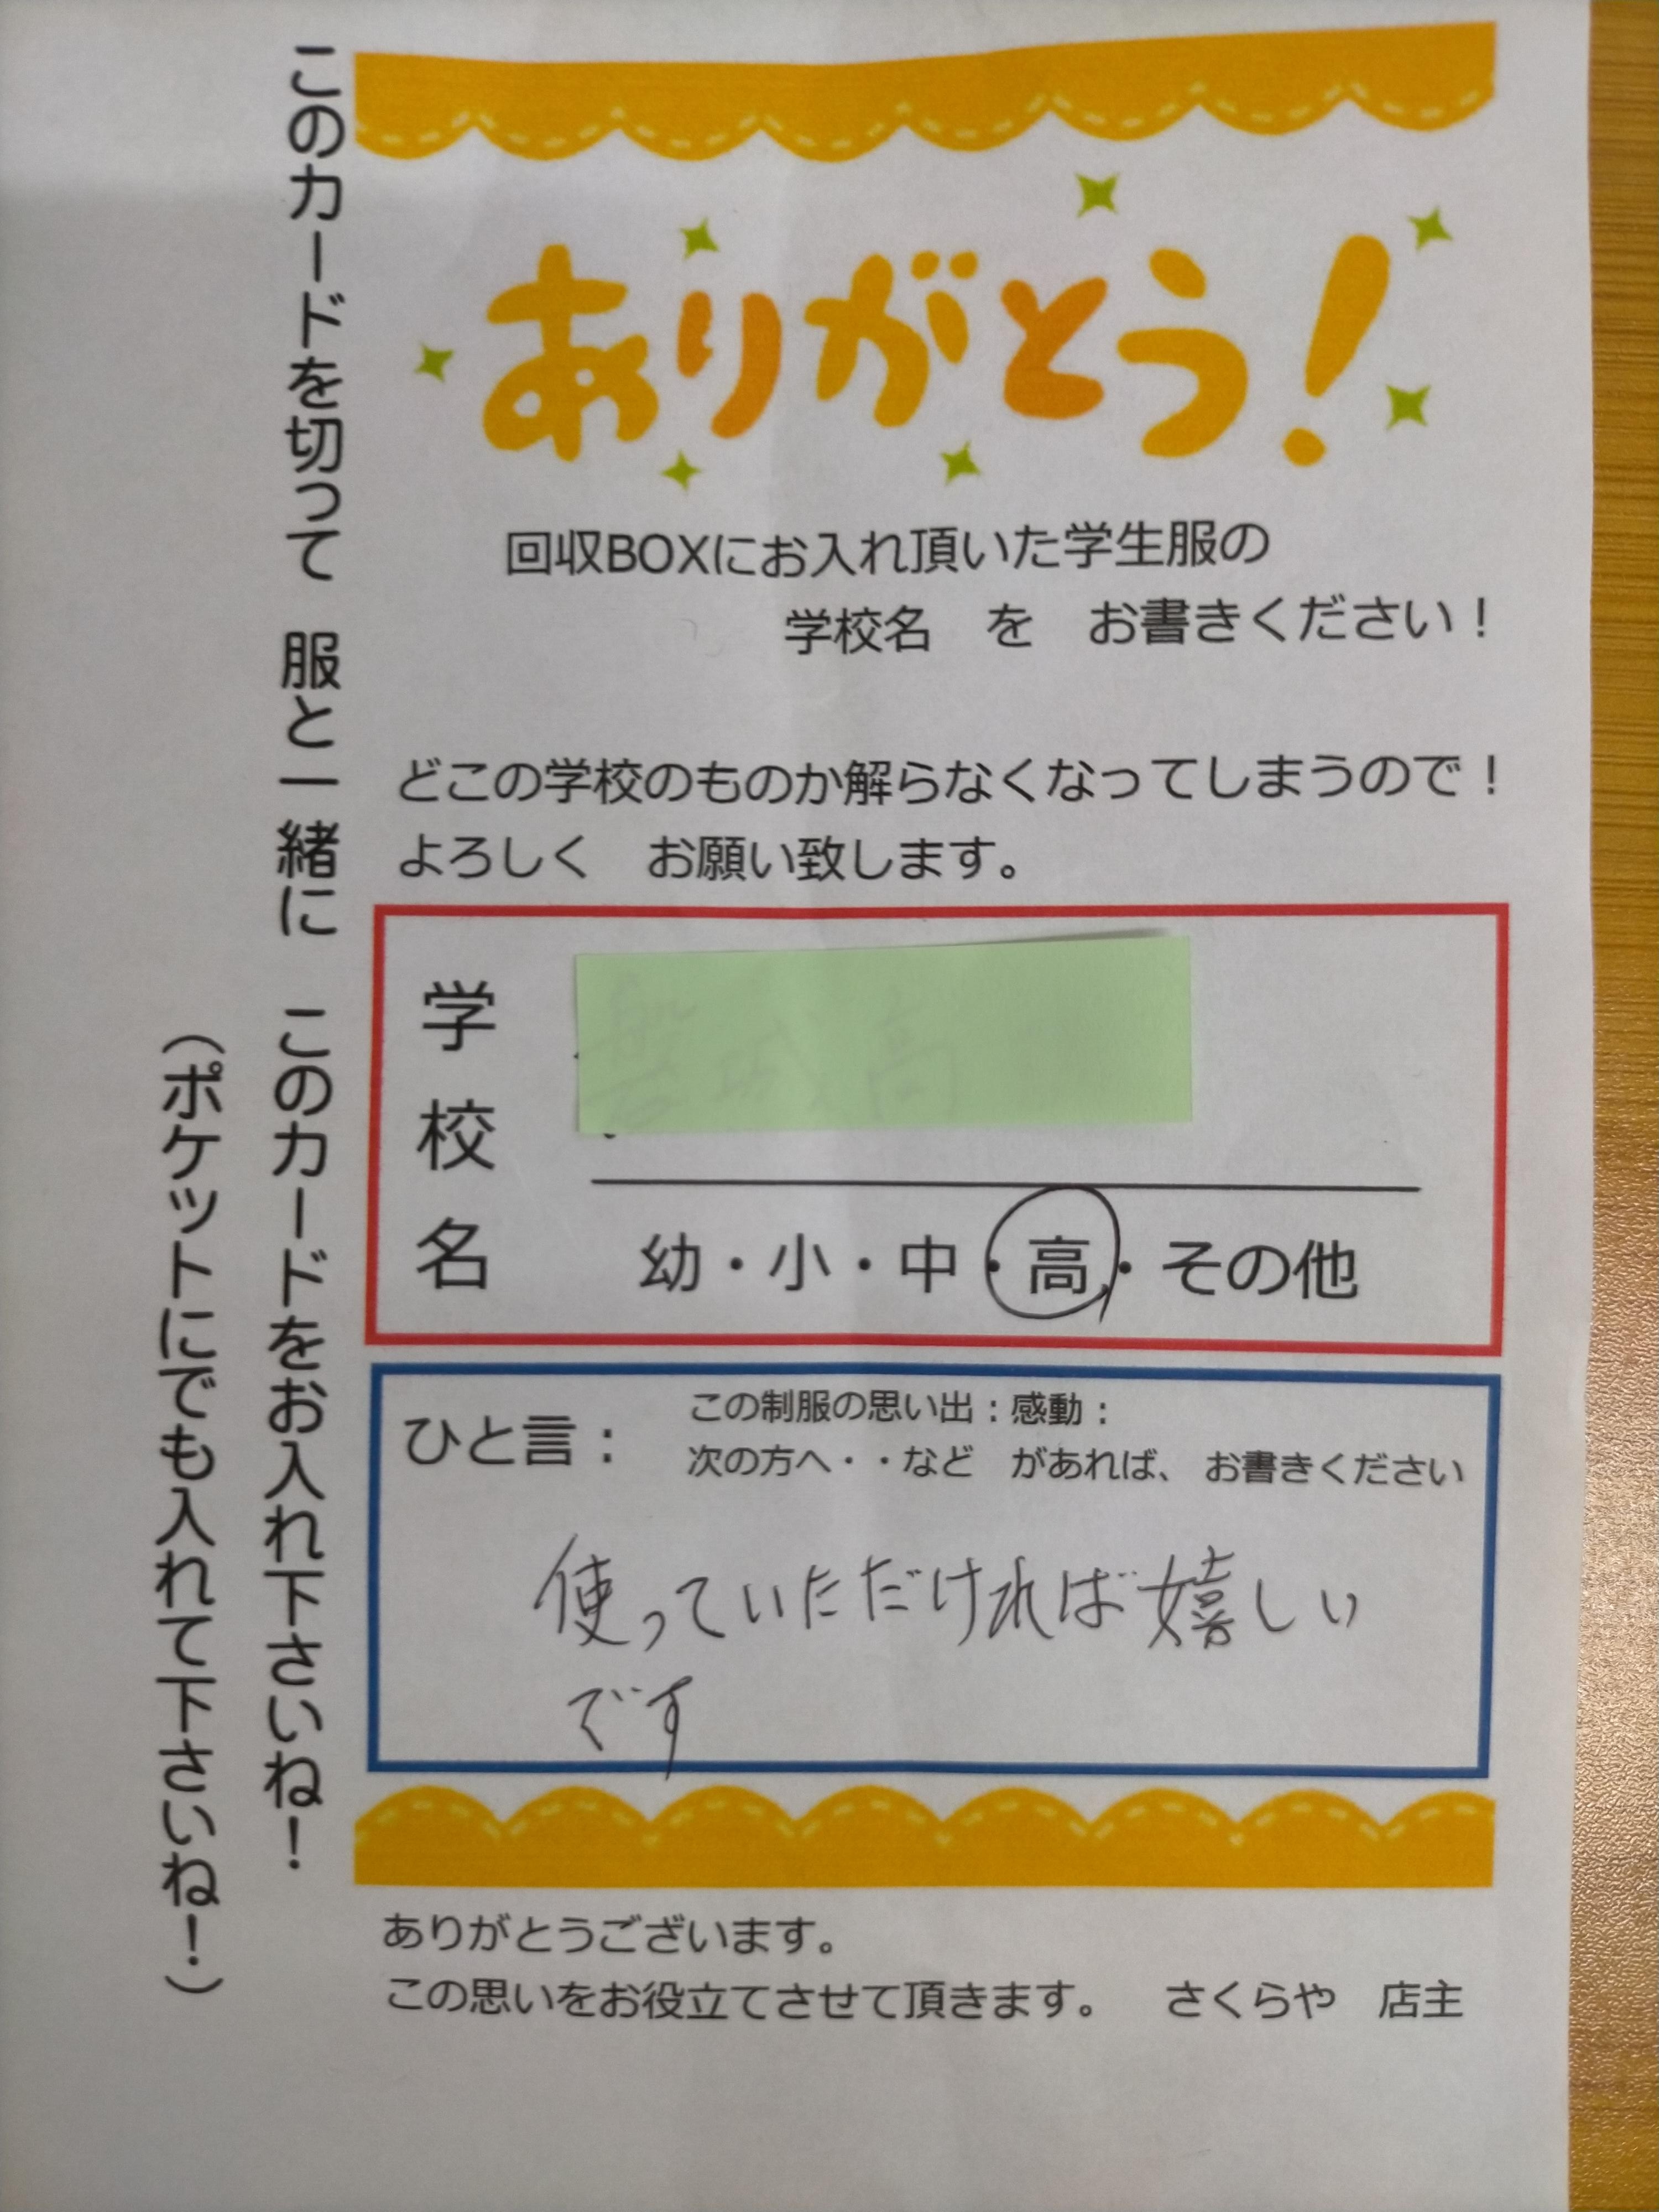 このカードを切って 服と一緒に このカードをお入れ下さいね！
（ポケットにでも入れて下さいね！）
ありがとう！
回収BOXにお入れ頂いた学生服の
学校名 を お書きください！
どこの学校のものか解らなくなってしまうので！
よろしく お願い致します。
学校名
幼・小・中・高・その他
ひと言：
この制服の思い出：感動：
次の方へ・・など があれば、お書きください
使っていただければ嬉しい
です
ありがとうございます。
この思いをお役立てさせて頂きます。 さくらや 店主